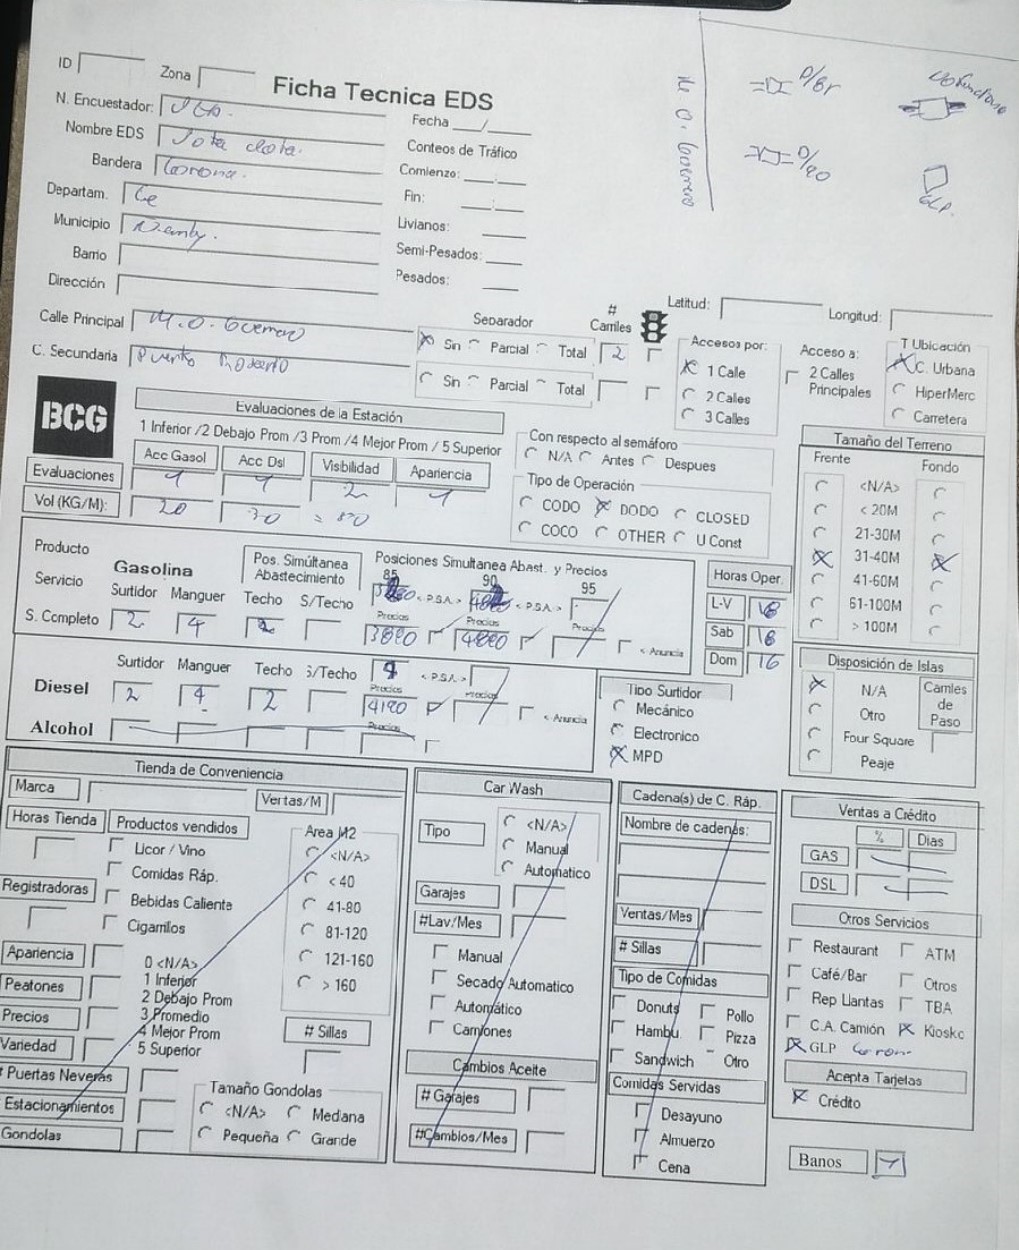 ID
Zona
Ficha Tecnica EDS
N. Encuestador:
Nombre EDS
Bandera Corona.
Departam. Ce
Municipio Ñemby.
Barrio
Dirección
Fecha / 
Conteos de Tráfico
Comienzo: :
Fin: :
Livianos:
Semi-Pesados:
Pesados:
GLP.
Calle Principal M.O. Guerrero
C. Secundaria Puerto
Separador
Sin Parcial Total
Sin Parcial Total
# Carriles
2
Latitud:
Longitud:
Accesos por:
1 Calle
2 Calles
3 Calles
Acceso a:
2 Calles Principales
T Ubicación
C. Urbana
HiperMerc
Carretera
BCG
Evaluaciones de la Estación
1 Inferior /2 Debajo Prom /3 Prom /4 Mejor Prom / 5 Superior
Acc Gasol Acc Dsl Visibilidad Apariencia
Evaluaciones 2
Vol (KG/M): 20 30
Con respecto al semáforo
N/A Antes Despues
Tipo de Operación
CODO DODO CLOSED
COCO OTHER U Const
Tamaño del Terreno
Frente Fondo
<N/A>
< 20M
21-30M
31-40M
41-60M
61-100M
> 100M
Producto
Servicio
Gasolina
Pos. Simúltanea Abastecimiento
Posiciones Simultanea Abast. y Precios
85 90 95
< P.S.A. > < P.S.A. >
Surtidor Manguer Techo S/Techo
Precios Precios Precios
S. Completo 2 4 2 3890 4890 < Anuncia
Horas Oper.
L-V 16
Sab 16
Dom 16
Surtidor Manguer Techo S/Techo 4 < P.S.A. >
Precios Precios
Diesel 2 4 2 4190 < Anuncia
Alcohol Precios
Tipo Surtidor
Mecánico
Electronico
MPD
Disposición de Islas
N/A
Otro
Four Square
Peaje
Carriles de Paso
Tienda de Conveniencia
Marca
Ventas/M
Horas Tienda
Productos vendidos
Licor / Vino
Comidas Ráp.
Bebidas Caliente
Cigarrillos
Registradoras
Area M2
<N/A>
< 40
41-80
81-120
121-160
> 160
Apariencia
Peatones
Precios
Variedad
0 <N/A>
1 Inferior
2 Debajo Prom
3 Promedio
4 Mejor Prom
5 Superior
# Sillas
# Puertas Neveras
Estacionamientos
Gondolas
Tamaño Gondolas
<N/A> Mediana
Pequeña Grande
Car Wash
Tipo
<N/A>
Manual
Automatico
Garajes
#Lav/Mes
Manual
Secado Automatico
Automático
Camiones
Cambios Aceite
# Garajes
#Cambios/Mes
Cadena(s) de C. Ráp.
Nombre de cadenas:
Ventas/Mes
# Sillas
Tipo de Comidas
Donuts Pollo
Hambu. Pizza
Sandwich Otro
Comidas Servidas
Desayuno
Almuerzo
Cena
Ventas a Crédito
% Dias
GAS
DSL
Otros Servicios
Restaurant ATM
Café/Bar Otros
Rep Llantas TBA
C.A. Camión Kiosko
GLP
Acepta Tarjetas
Crédito
Banos